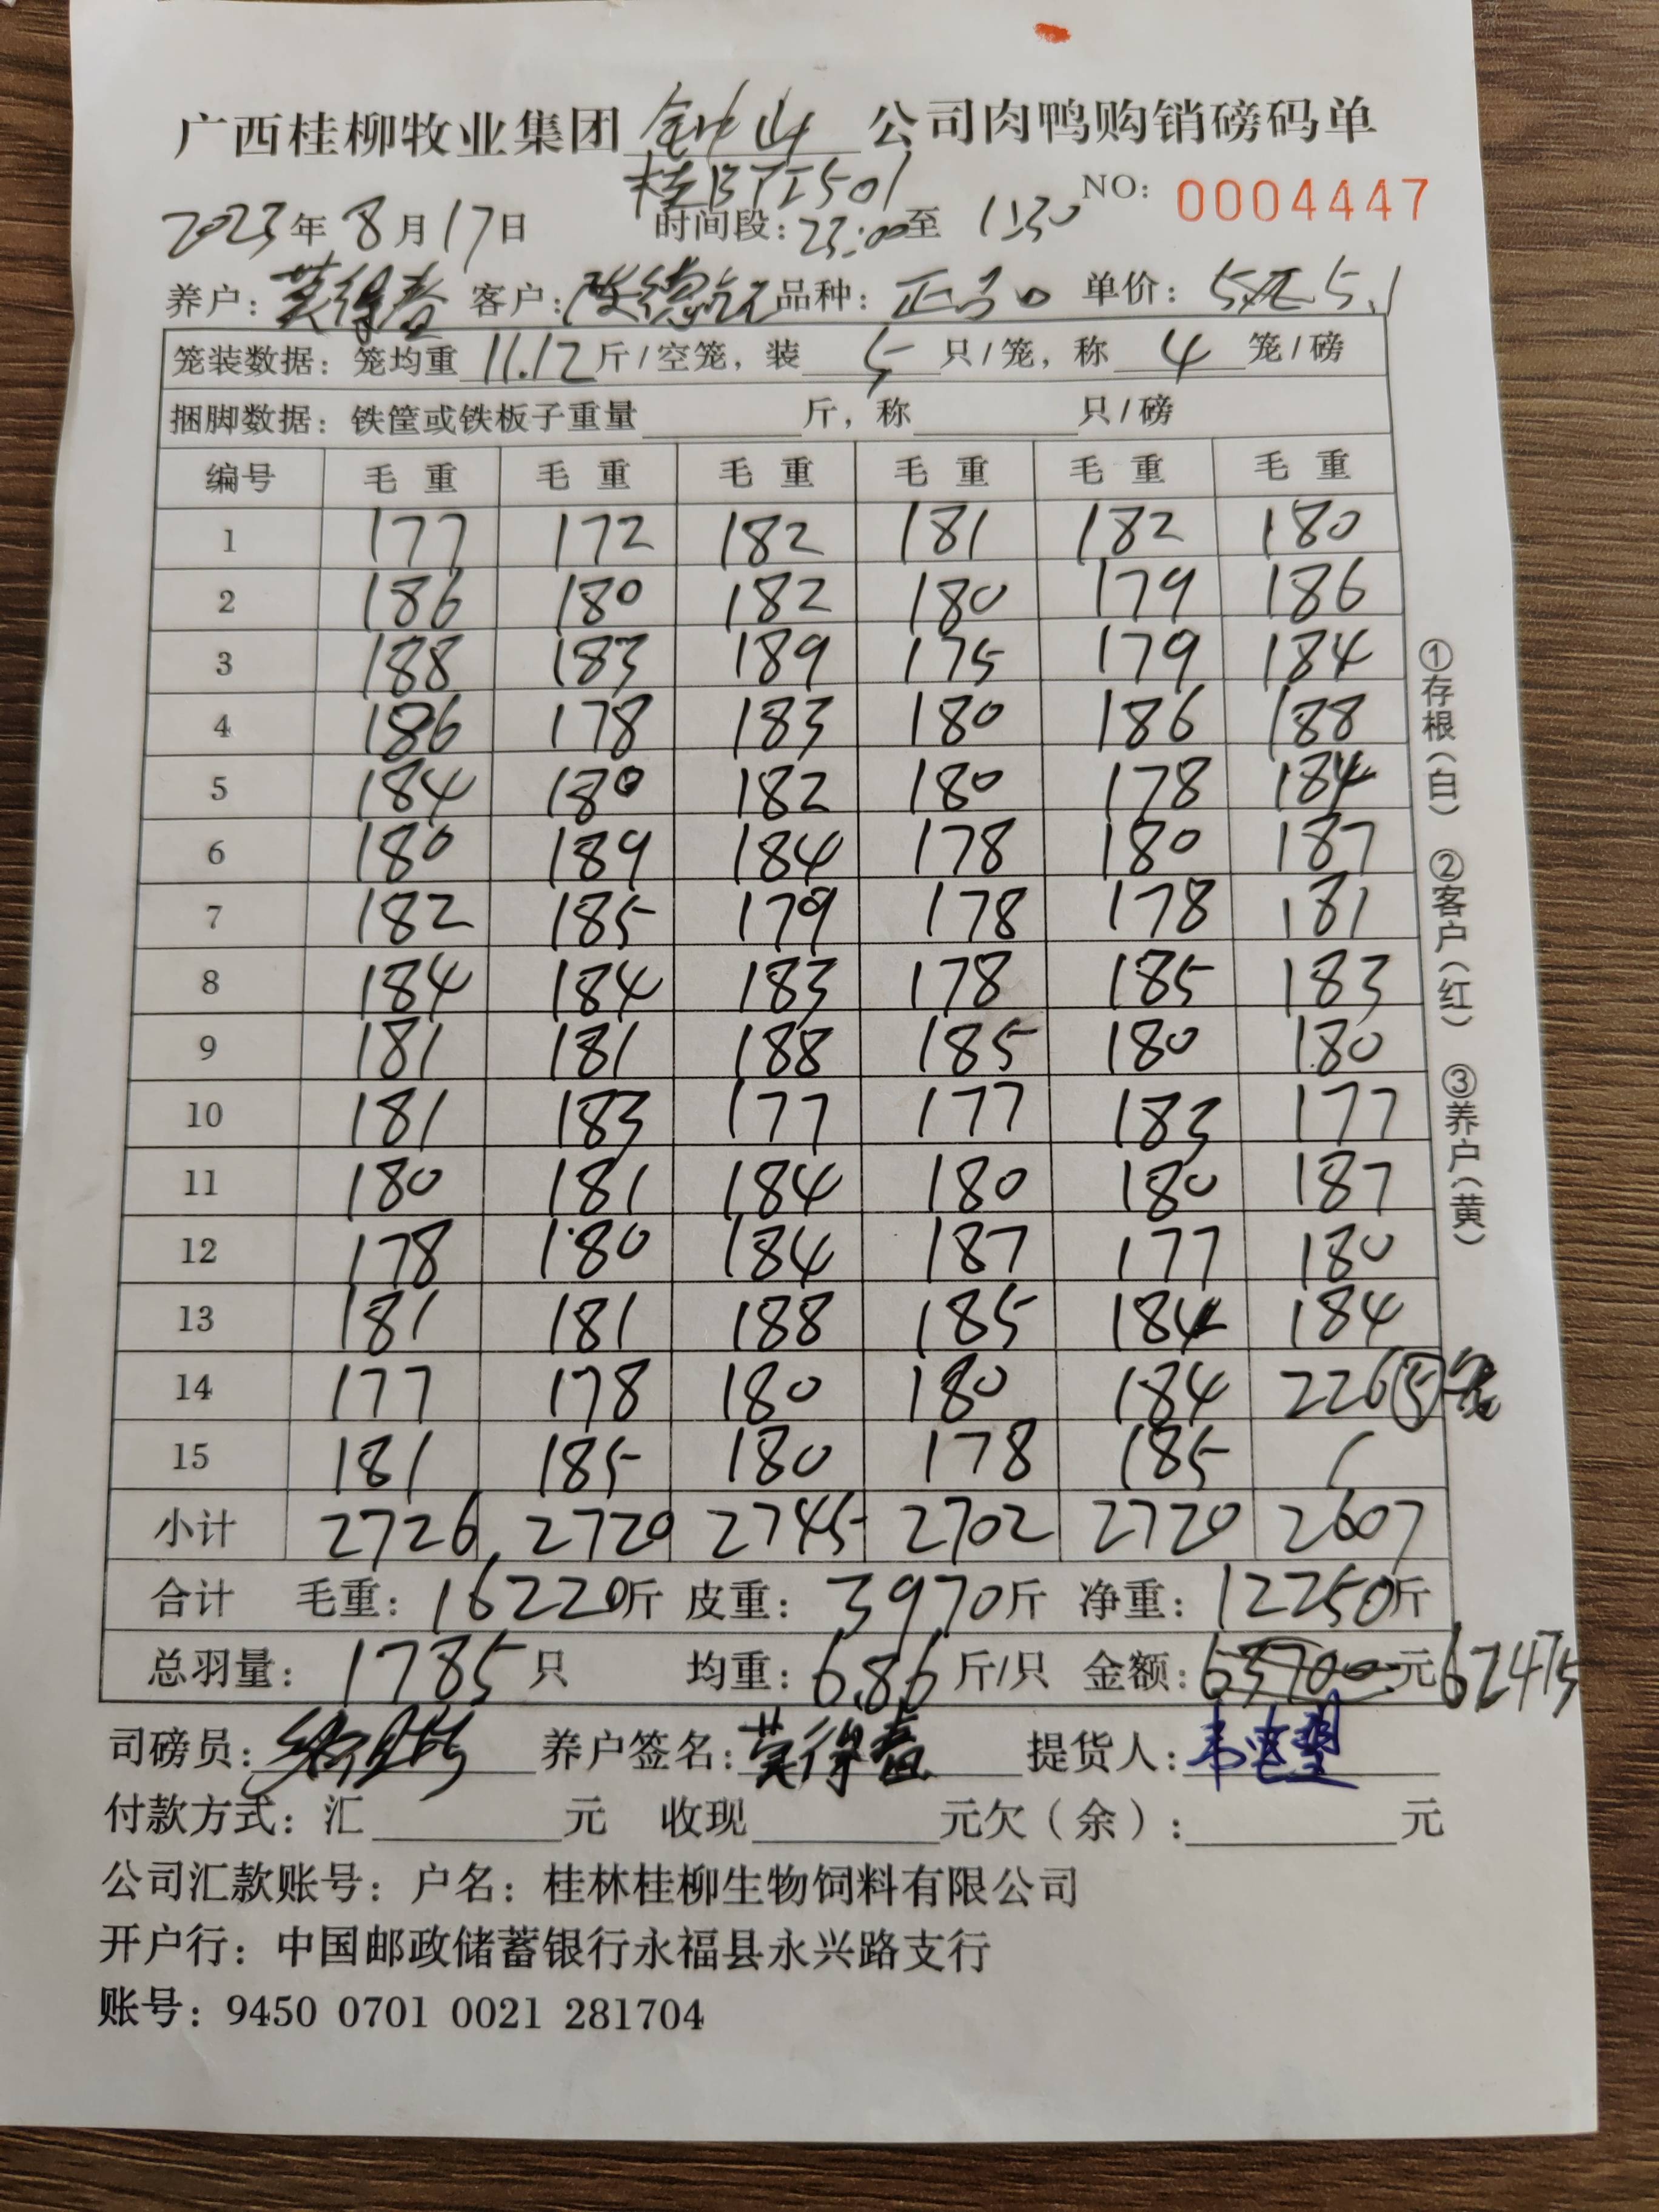 广西桂柳牧业集团 钟山 公司肉鸭购销磅码单
NO: 0004447
2023年8月17日 时间段: 23:00至 1:30
养户: 莫徐春 客户: 品种: 单价: 5.1
笼装数据: 笼均重 11.12 斤/空笼, 装 5 只/笼, 称 4 笼/磅
捆脚数据: 铁筐或铁板子重量 斤, 称 只/磅
编号 毛重 毛重 毛重 毛重 毛重 毛重
1 177 172 182 181 182 180
2 186 180 182 180 179 186
3 188 183 189 175 179 184
4 186 178 183 180 186 188
5 184 180 182 180 178 184
6 180 189 184 178 180 187
7 182 185 179 178 178 181
8 184 184 183 178 185 183
9 181 181 188 185 180 180
10 181 183 177 177 183 177
11 180 181 184 180 180 187
12 178 180 184 187 177 180
13 181 181 188 185 184 184
14 177 178 180 180 184 226 ⑤笼
15 181 185 180 178 185 /
小计 2726 2720 2745 2702 2720 2607
合计 毛重: 16220斤 皮重: 3970斤 净重: 12250斤
总羽量: 1785 只 均重: 6.86 斤/只 金额: 63700元 62475
司磅员: 养户签名: 莫徐春 提货人:
付款方式: 汇 元 收现 元欠(余): 元
公司汇款账号: 户名: 桂林桂柳生物饲料有限公司
开户行: 中国邮政储蓄银行永福县永兴路支行
账号: 9450 0701 0021 281704
①存根(白) ②客户(红) ③养户(黄)